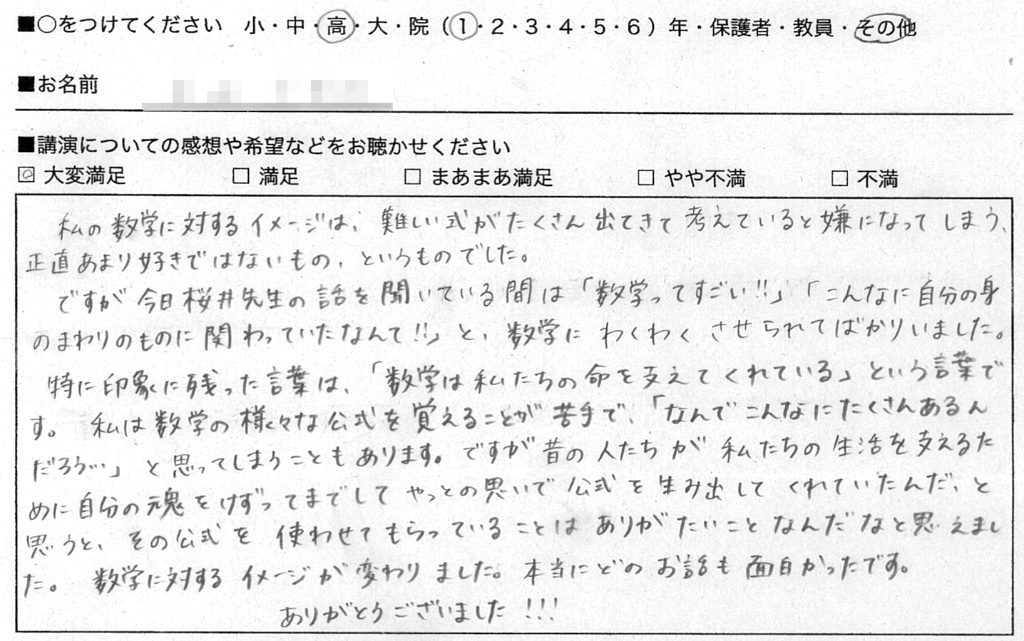 ■○をつけてください 小・中・高・大・院（1・2・3・4・5・6）年・保護者・教員・その他
■お名前
■講演についての感想や希望などをお聴かせください
☑ 大変満足 □ 満足 □ まあまあ満足 □ やや不満 □ 不満
私の数学に対するイメージは、難しい式がたくさん出てきて考えていると嫌になってしまう、
正直あまり好きではないもの、というものでした。
ですが今日桜井先生の話を聞いている間は「数学ってすごい!!」「こんなに自分の身
のまわりのものに関わっていたなんて!!」と、数学にわくわくさせられてばかりいました。
特に印象に残った言葉は、「数学は私たちの命を支えてくれている」という言葉で
す。私は数学の様々な公式を覚えることが苦手で、「なんでこんなにたくさんあるん
だろう…」と思ってしまうこともあります。ですが昔の人たちが私たちの生活を支えるた
めに自分の魂をけずってまでしてやっとの思いで公式を生み出してくれていたんだ、と
思うと、その公式を使わせてもらっていることはありがたいことなんだなと思えまし
た。数学に対するイメージが変わりました。本当にどのお話も面白かったです。
ありがとうございました!!!